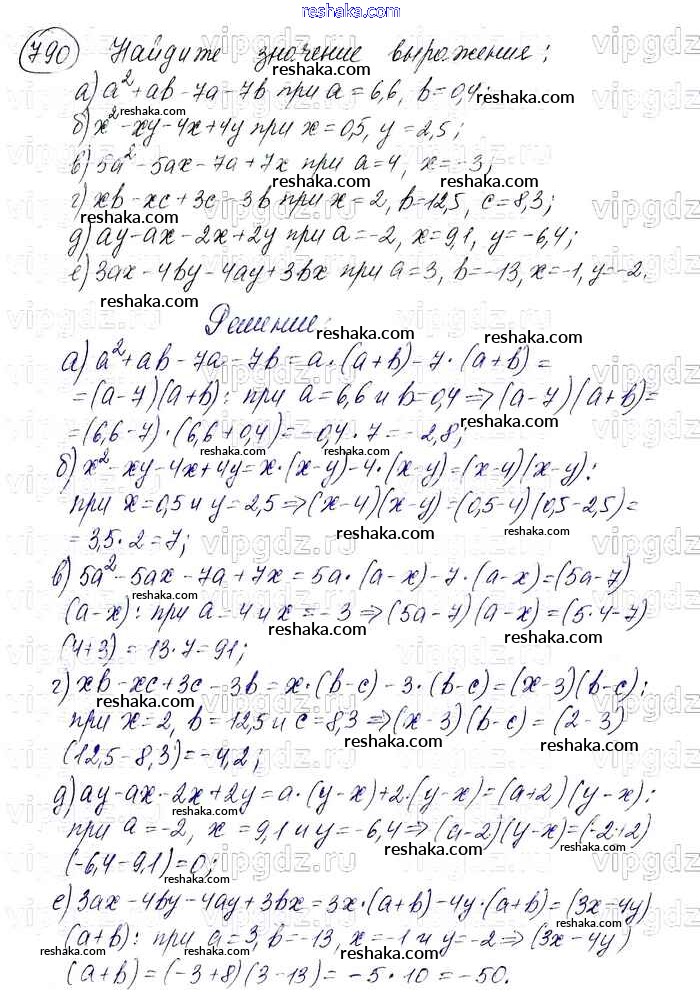 reshaka.com
790 Найдите значение выражения:
а) a² + ab - 7a - 7b при a = 6,6, b = 0,4;
б) x² - xy - 4x + 4y при x = 0,5, y = 2,5;
в) 5a² - 5ax - 7a + 7x при a = 4, x = -3;
г) xb - xc + 3c - 3b при x = 2, b = 12,5, c = 8,3;
д) ay - ax - 2x + 2y при a = -2, x = 9,1, y = -6,4;
е) 3ax - 4by - 4ay + 3bx при a = 3, b = -13, x = -1, y = -2.
Решение:
а) a² + ab - 7a - 7b = a·(a+b) - 7·(a+b) =
= (a-7)(a+b): при a = 6,6 и b = 0,4 ⇒ (a-7)(a+b) =
= (6,6-7)·(6,6+0,4) = -0,4·7 = -2,8;
б) x² - xy - 4x + 4y = x·(x-y) - 4·(x-y) = (x-y)(x-y):
при x = 0,5 и y = 2,5 ⇒ (x-4)(x-y) = (0,5-4)(0,5-2,5) =
= 3,5·2 = 7;
в) 5a² - 5ax - 7a + 7x = 5a·(a-x) - 7·(a-x) = (5a-7)
(a-x): при a = 4 и x = -3 ⇒ (5a-7)(a-x) = (5·4-7)
(4+3) = 13·7 = 91;
г) xb - xc + 3c - 3b = x·(b-c) - 3·(b-c) = (x-3)(b-c):
при x = 2, b = 12,5 и c = 8,3 ⇒ (x-3)(b-c) = (2-3)
(12,5-8,3) = -4,2;
д) ay - ax - 2x + 2y = a·(y-x) + 2·(y-x) = (a+2)(y-x):
при a = -2, x = 9,1 и y = -6,4 ⇒ (a-2)(y-x) = (-2+2)
(-6,4-9,1) = 0;
е) 3ax - 4by - 4ay + 3bx = 3x·(a+b) - 4y·(a+b) = (3x-4y)
(a+b): при a = 3, b = -13, x = -1 и y = -2 ⇒ (3x-4y)
(a+b) = (-3+8)(3-13) = -5·10 = -50.